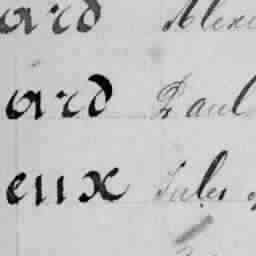 ard Alexi
ard Paul
eux Jules